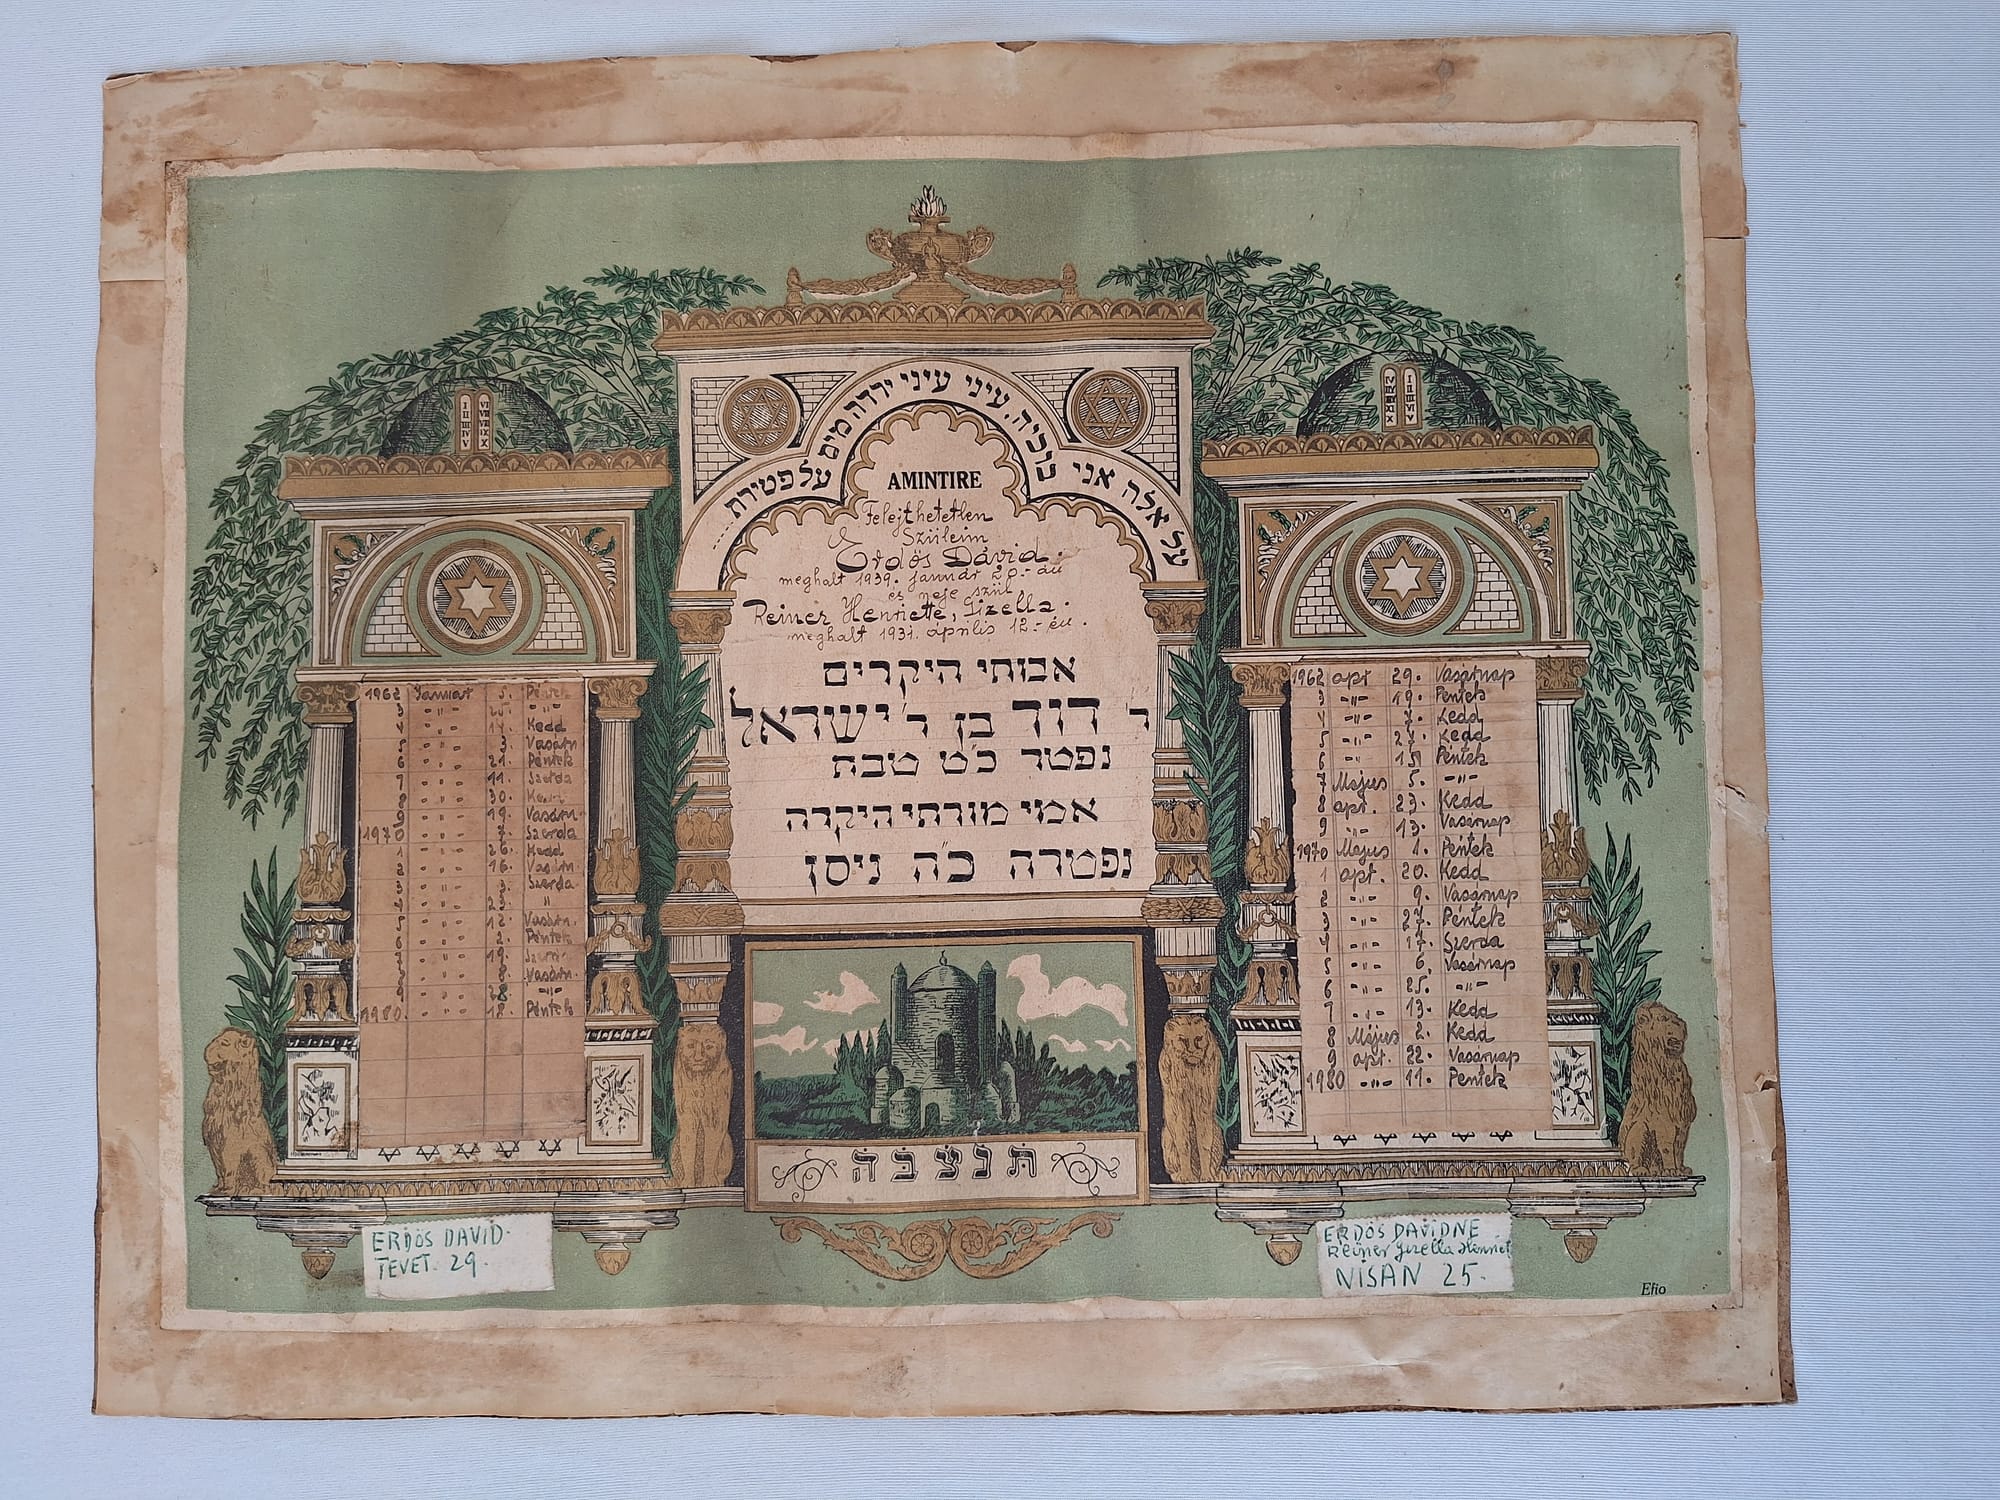 על אלה אני בוכיה. עיני עיני ירדה מים על פטירת
AMINTIRE
Felejthetetlen
Szüleim
Erdös Dávid.
meghalt 1939. január 20.-án
és neje szül
Reiner Henriette, Gizella.
meghalt 1931. április 12.-én.
אבותי היקרים
ר דוד בן ר' ישראל
נפטר כ"ט טבת
אמי מורתי היקרה
נפטרה כ"ה ניסן
ת נ צ ב ה
I II III IV V VI VII VIII IX X
1962 Január 5. Péntek
3 -"- -"-
4 -"- Kedd
5 -"- Vasárn
6 -"- 21. Péntek
7 -"- 11. Szerda
8 -"- 30. Kedd
9 -"- 19. Vasárn.
1970 -"- Szerda
1 -"- 26. Kedd
2 -"- 16. Vasárn.
3 -"- 3. Szerda
-"- "
-"- 12. Vasárn.
-"- 2. Péntek
-"- 19.
-"- 8. Vasárn.
-"- 28 -"-
1980. -"- 18. Péntek
1962 apr 29. Vasárnap
3 -"- 19. Péntek
4 -"- 7. Kedd
5 -"- 27. Kedd
6 -"- 15 Péntek
7 Május 5. -"-
8 apr. 23. Kedd
9 -"- 13. Vasárnap
1970 Május 1. Péntek
1 apt. 20. Kedd
2 -"- 9. Vasárnap
3 -"- 27. Péntek
4 -"- 17. Szerda
5 -"- 6. Vasárnap
6 -"- 25. -"-
7 -"- 13. Kedd
8 Május 2. Kedd
9 apt. 22. Vasárnap
1980 -"- 11. Péntek
ERDÖS DAVID.
TEVET. 29.
ERDÖS DAVIDNE
Reiner Gizella Henriet
NISAN 25.
Efio